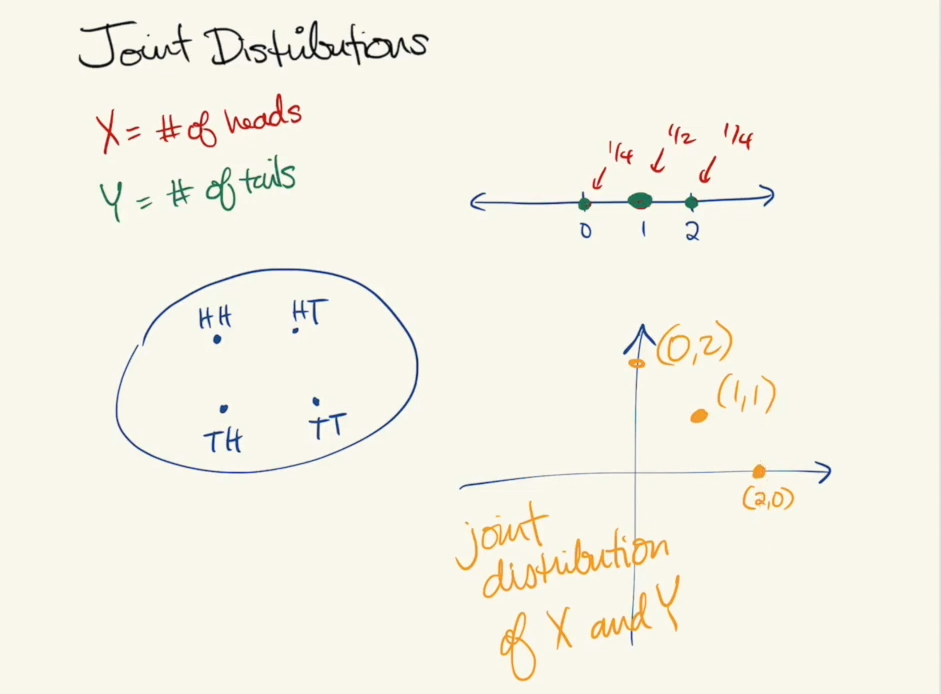 Joint Distributions
X = # of heads
Y = # of tails
1/4 1/2 1/4
0 1 2
HH HT
TH TT
(0,2)
(1,1)
(2,0)
joint
distribution
of X and Y